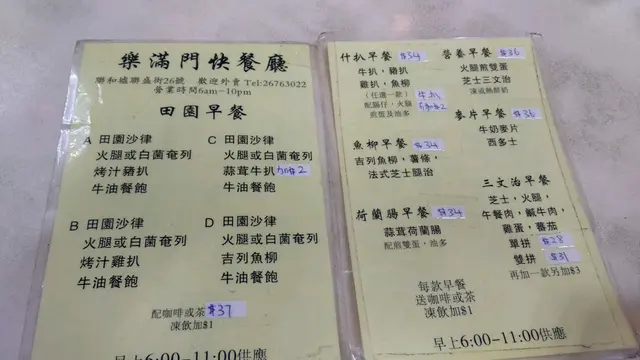 樂滿門快餐廳
聯和墟聯盛街26號 歡迎外賣 Tel:26763022
營業時間6am–10pm
田園早餐
A 田園沙律
火腿或白菌奄列
烤汁豬扒
牛油餐飽
C 田園沙律
火腿或白菌奄列
蒜茸牛扒 加$2
牛油餐飽
B 田園沙律
火腿或白菌奄列
烤汁雞扒
牛油餐飽
D 田園沙律
火腿或白菌奄列
吉列魚柳
牛油餐飽
配咖啡或茶 $37
凍飲加$1
早上6:00-11:00供應
什扒早餐 $34
牛扒，豬扒
雞扒，魚柳
(任選一款) 牛扒
配腸仔，火腿 加$2
煎蛋及油多
魚柳早餐 $34
吉列魚柳，薯條，
法式芝士腿治
荷蘭腸早餐 $34
蒜茸荷蘭腸
配煎雙蛋，油多
每款早餐
送咖啡或茶
凍飲加$1
營養早餐 $36
火腿煎雙蛋
芝士三文治
凍或熱鮮奶
麥片早餐 $36
牛奶麥片
西多士
三文治早餐
芝士，火腿，
午餐肉，鹹牛肉，
雞蛋，蕃茄
單拼 $28
雙拼 $31
再加一款另加$3
早上6:00-11:00供應